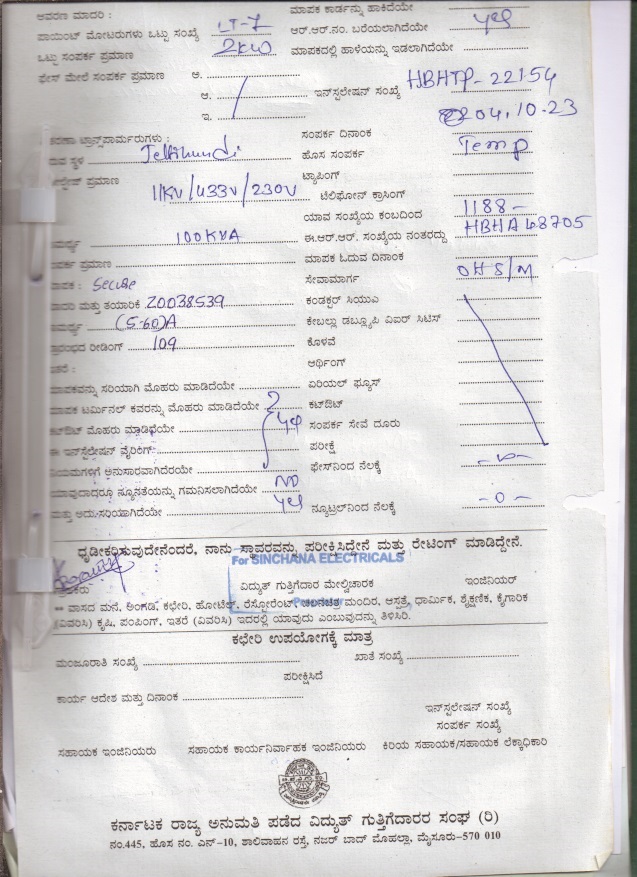 ಆವರಣ ಮಾದರಿ : ಮಾಪಕ ಕಾರ್ಡನ್ನು ಹಾಕಿದೆಯೇ
ಪಾಯಿಂಟ್ ಮೋಟರುಗಳು ಒಟ್ಟು ಸಂಖ್ಯೆ LT-7 ಆರ್.ಆರ್.ನಂ. ಬರೆಯಲಾಗಿದೆಯೇ yes
ಒಟ್ಟು ಸಂಪರ್ಕ ಪ್ರಮಾಣ 2KW ಮಾಪಕದಲ್ಲಿ ಹಾಳೆಯನ್ನು ಇಡಲಾಗಿದೆಯೇ
ಫೇಸ್ ಮೇಲೆ ಸಂಪರ್ಕ ಪ್ರಮಾಣ ಅ.
ಆ. ಇನ್‌ಸ್ಟಲೇಷನ್ ಸಂಖ್ಯೆ HBHTP-22154
ಇ. 04.10.23
ಟ್ರಾನ್ಸ್‌ಪಾರ್ಮರುಗಳು : ಸಂಪರ್ಕ ದಿನಾಂಕ
ಸ್ಥಳ ಹೊಸ ಸಂಪರ್ಕ Temp
ಪ್ರಮಾಣ 11KV/433V/230V ಟ್ಯಾಪಿಂಗ್
ಟೆಲಿಫೋನ್ ಕ್ರಾಸಿಂಗ್
ಯಾವ ಸಂಖ್ಯೆಯ ಕಂಬದಿಂದ 1188-
100KVA ಈ.ಆರ್.ಆರ್. ಸಂಖ್ಯೆಯ ನಂತರದ್ದು HBHA48705
ಪ್ರಮಾಣ ಮಾಪಕ ಓದುವ ದಿನಾಂಕ
Secure ಸೇವಾಮಾರ್ಗ OHS/M
ಮತ್ತು ತಯಾರಿಕೆ 20038539 ಕಂಡಕ್ಟರ್ ಸಿಯುಎ
(5-60)A ಕೇಬಲ್ಲು ಡಬ್ಲ್ಯೂಪಿ ವಿಐರ್ ಸಿಟಿಸ್
ರೀಡಿಂಗ್ 109 ಕೊಳವೆ
ಇತರೆ : ಅರ್ಥಿಂಗ್
ಮಾಪಕವನ್ನು ಸರಿಯಾಗಿ ಮೊಹರು ಮಾಡಿದೆಯೇ ಏರಿಯಲ್ ಫ್ಯೂಸ್
ಮಾಪಕ ಟರ್ಮಿನಲ್ ಕವರನ್ನು ಮೊಹರು ಮಾಡಿದೆಯೇ ಕಟ್‌ಔಟ್
ಕಟ್‌ಔಟ್ ಮೊಹರು ಮಾಡಿದೆಯೇ yes ಸಂಪರ್ಕ ಸೇವೆ ದೂರು
ಈ ಇನ್‌ಸ್ಟಲೇಷನ್ ವೈರಿಂಗ್ ಪರೀಕ್ಷೆ
ನಿಯಮಗಳಿಗೆ ಅನುಸಾರವಾಗಿದೆಯೇ ಫೇಸ್‌ನಿಂದ ನೆಲಕ್ಕೆ
ಯಾವುದಾದರೂ ನ್ಯೂನತೆಯನ್ನು ಗಮನಿಸಲಾಗಿದೆಯೇ NO
ಮತ್ತು ಅದು ಸರಿಯಾಗಿದೆಯೇ yes ನ್ಯೂಟ್ರಲ್‌ನಿಂದ ನೆಲಕ್ಕೆ -0-
ಧೃಡೀಕರಿಸುವುದೇನೆಂದರೆ, ನಾನು ಸ್ಥಾವರವನ್ನು ಪರೀಕ್ಷಿಸಿದ್ದೇನೆ ಮತ್ತು ರೇಟಿಂಗ್ ಮಾಡಿದ್ದೇನೆ.
For SINCHANA ELECTRICALS
ವಿದ್ಯುತ್ ಗುತ್ತಿಗೆದಾರ ಮೇಲ್ವಿಚಾರಕ ಇಂಜಿನಿಯರ್
** ವಾಸದ ಮನೆ, ಅಂಗಡಿ, ಕಛೇರಿ, ಹೋಟೆಲ್, ರೆಸ್ಟೋರೆಂಟ್, ಚಲನಚಿತ್ರ ಮಂದಿರ, ಆಸ್ಪತ್ರೆ, ಧಾರ್ಮಿಕ, ಶೈಕ್ಷಣಿಕ, ಕೈಗಾರಿಕ
(ವಿವರಿಸಿ) ಕೃಷಿ, ಪಂಪಿಂಗ್, ಇತರೆ (ವಿವರಿಸಿ) ಇದರಲ್ಲಿ ಯಾವುದು ಎಂಬುವುದನ್ನು ತಿಳಿಸಿರಿ.
ಕಛೇರಿ ಉಪಯೋಗಕ್ಕೆ ಮಾತ್ರ
ಮಂಜೂರಾತಿ ಸಂಖ್ಯೆ ಖಾತೆ ಸಂಖ್ಯೆ
ಪರೀಕ್ಷಿಸಿದೆ
ಕಾರ್ಯ ಆದೇಶ ಮತ್ತು ದಿನಾಂಕ
ಇನ್‌ಸ್ಟಲೇಷನ್ ಸಂಖ್ಯೆ
ಸಂಪರ್ಕ ಸಂಖ್ಯೆ
ಸಹಾಯಕ ಇಂಜಿನಿಯರು ಸಹಾಯಕ ಕಾರ್ಯನಿರ್ವಾಹಕ ಇಂಜಿನಿಯರು ಕಿರಿಯ ಸಹಾಯಕ/ಸಹಾಯಕ ಲೆಕ್ಕಾಧಿಕಾರಿ
ಕರ್ನಾಟಕ ರಾಜ್ಯ ಅನುಮತಿ ಪಡೆದ ವಿದ್ಯುತ್ ಗುತ್ತಿಗೆದಾರರ ಸಂಘ (ರಿ)
ನಂ.445, ಹೊಸ ನಂ. ಎನ್-10, ಶಾಲಿವಾಹನ ರಸ್ತೆ, ನಜರ್ ಬಾದ್ ಮೊಹಲ್ಲಾ, ಮೈಸೂರು-570 010